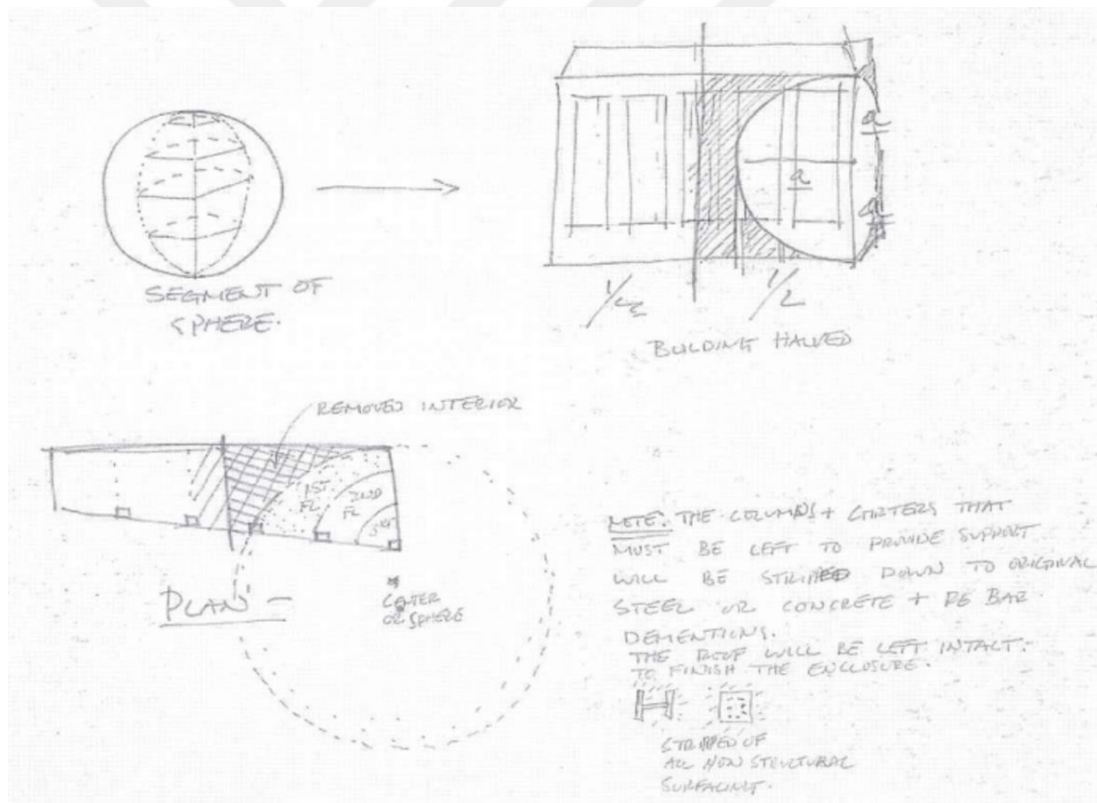 SEGMENT OF
SPHERE.
a
a
a
1/2
1/2
BUILDING HALVED
REMOVED INTERIOR
1ST
FL
2ND
FL
3RD
PLAN -
CENTER
OF SPHERE
NOTE: THE COLUMNS + GIRTERS THAT
MUST BE LEFT TO PROVIDE SUPPORT
WILL BE STRIPPED DOWN TO ORIGINAL
STEEL OR CONCRETE + RE BAR
DEMENTIONS.
THE ROOF WILL BE LEFT INTACT.
TO FINISH THE ENCLOSURE.
STRIPPED OF
ALL NON STRUCTURAL
SURFACING.